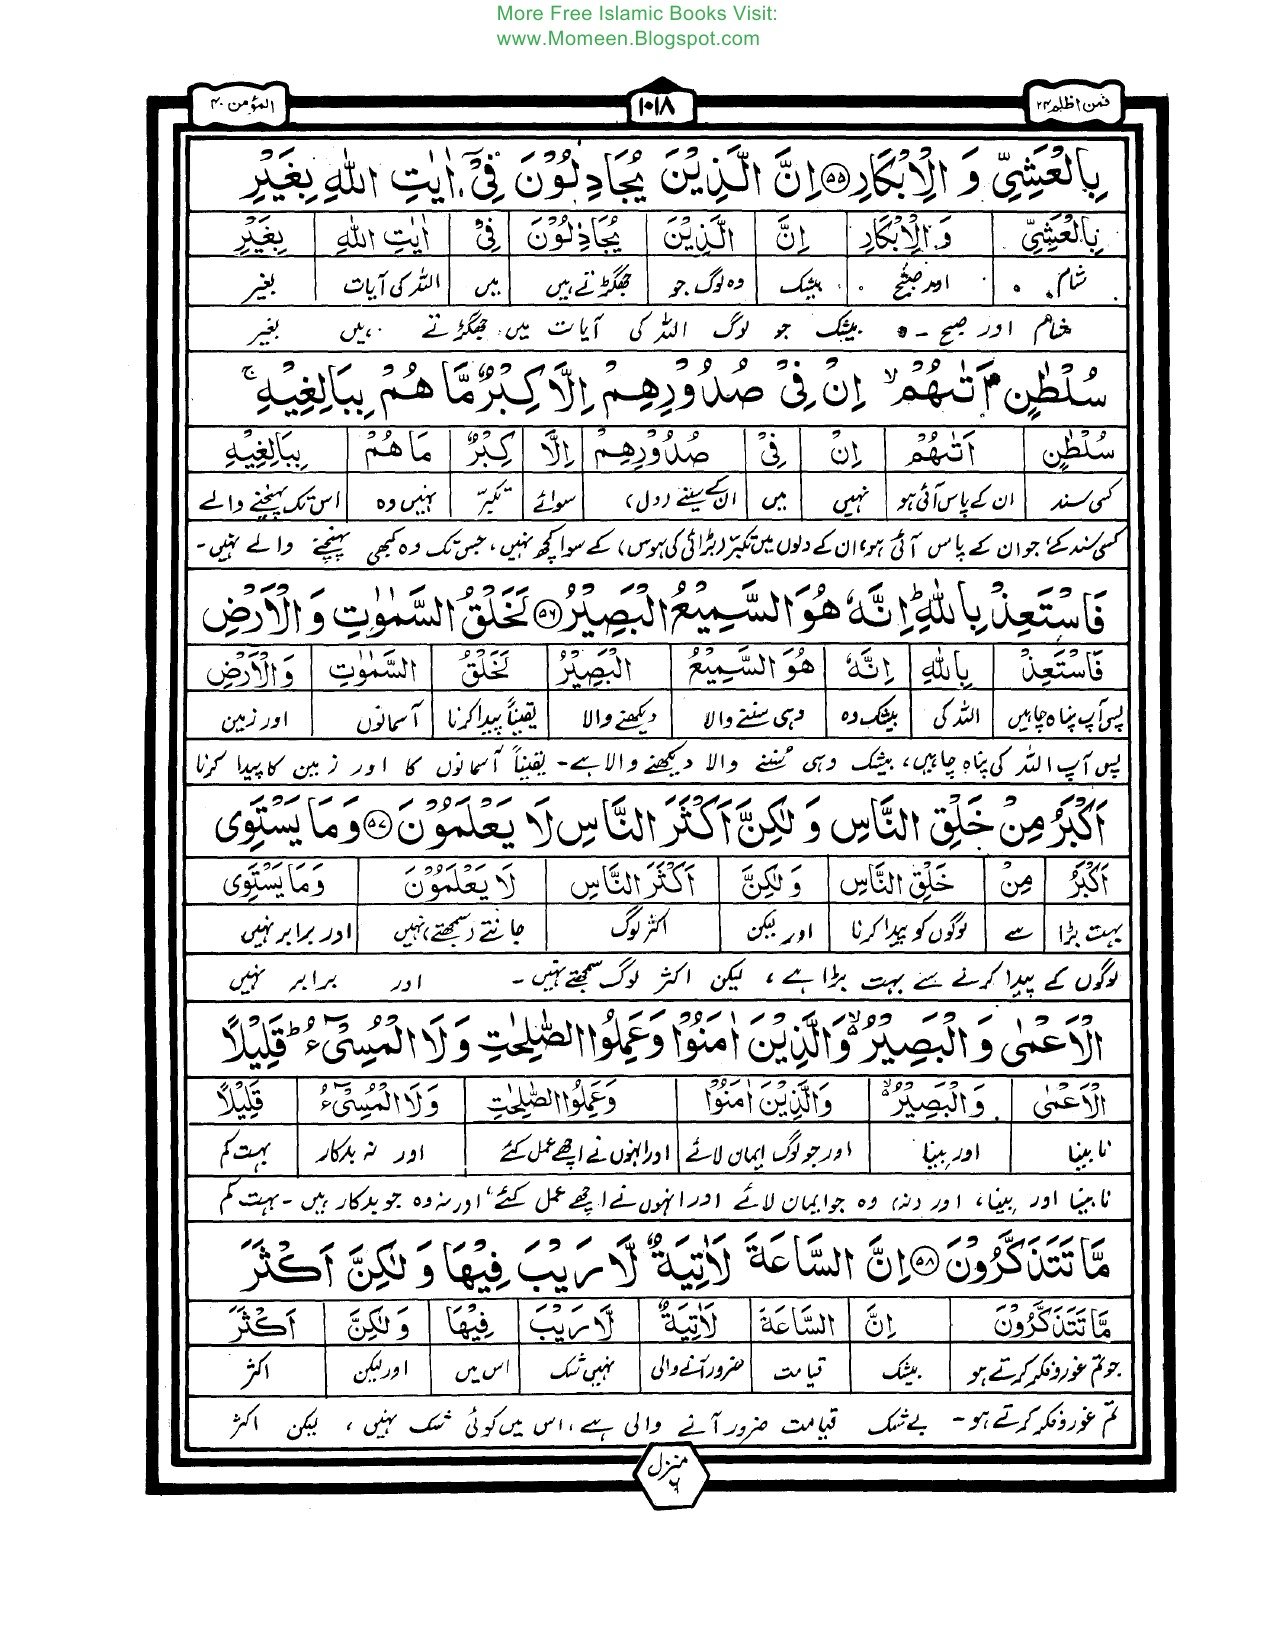 More Free Islamic Books Visit:
www.Momeen.Blogspot.com
فمن اظلم ۲۴ ۱۰۱۸ المؤمن ۴۰
بِالْعَشِيِّ وَ الْاِبْكَارِ ﴿۵۵﴾ اِنَّ الَّذِيْنَ يُجَادِلُوْنَ فِيْٓ اٰيٰتِ اللّٰهِ بِغَيْرِ
بِالْعَشِيِّ وَالْاِبْكَارِ اِنَّ الَّذِيْنَ يُجَادِلُوْنَ فِيْٓ اٰيٰتِ اللّٰهِ بِغَيْرِ
شام اور صبح بیشک وہ لوگ جو جھگڑتے ہیں میں اللہ کی آیات بغیر
شام اور صبح ۔ بیشک جو لوگ اللہ کی آیات میں جھگڑتے ہیں بغیر
سُلْطٰنٍ اَتٰىهُمْ ۙ اِنْ فِيْ صُدُوْرِهِمْ اِلَّا كِبْرٌ مَّا هُمْ بِبَالِغِيْهِ ۚ
سُلْطٰنٍ اَتٰىهُمْ اِنْ فِيْ صُدُوْرِهِمْ اِلَّا كِبْرٌ مَا هُمْ بِبَالِغِيْهِ
کسی سند ان کے پاس آئی ہو نہیں میں ان کے سینے (دل) سوائے تکبر نہیں وہ اس تک پہنچنے والے
کسی سند کے جو ان کے پاس آئی ہو، ان کے دلوں میں تکبر (بڑائی کی ہوس) کے سوا کچھ نہیں، جس تک وہ کبھی پہنچنے والے نہیں۔
فَاسْتَعِذْ بِاللّٰهِ ؕ اِنَّهٗ هُوَ السَّمِيْعُ الْبَصِيْرُ ﴿۵۶﴾ لَخَلْقُ السَّمٰوٰتِ وَ الْاَرْضِ
فَاسْتَعِذْ بِاللّٰهِ اِنَّهٗ هُوَ السَّمِيْعُ الْبَصِيْرُ لَخَلْقُ السَّمٰوٰتِ وَالْاَرْضِ
پس آپ پناہ چاہیں اللہ کی بیشک وہ وہی سننے والا دیکھنے والا یقیناً پیدا کرنا آسمانوں اور زمین
پس آپ اللہ کی پناہ چاہیں، بیشک وہی سُننے والا دیکھنے والا ہے۔ یقیناً آسمانوں کا اور زمین کا پیدا کرنا
اَكْبَرُ مِنْ خَلْقِ النَّاسِ وَ لٰكِنَّ اَكْثَرَ النَّاسِ لَا يَعْلَمُوْنَ ﴿۵۷﴾ وَ مَا يَسْتَوِي
اَكْبَرُ مِنْ خَلْقِ النَّاسِ وَ لٰكِنَّ اَكْثَرَ النَّاسِ لَا يَعْلَمُوْنَ وَمَا يَسْتَوِي
بہت بڑا سے لوگوں کو پیدا کرنا اور لیکن اکثر لوگ جانتے (سمجھتے) نہیں اور برابر نہیں
لوگوں کے پیدا کرنے سے بہت بڑا ہے، لیکن اکثر لوگ سمجھتے نہیں۔ اور برابر نہیں
الْاَعْمٰى وَ الْبَصِيْرُ ۙ وَالَّذِيْنَ اٰمَنُوْا وَعَمِلُوا الصّٰلِحٰتِ وَ لَا الْمُسِيْٓءُ ؕ قَلِيْلًا
الْاَعْمٰى وَ الْبَصِيْرُ ۙ وَالَّذِيْنَ اٰمَنُوْا وَعَمِلُوا الصّٰلِحٰتِ وَلَا الْمُسِيْٓءُ قَلِيْلًا
نابینا اور بینا اور جو لوگ ایمان لائے اور انہوں نے اچھے عمل کئے اور نہ بدکار بہت کم
نابینا اور بینا، اور (نہ) وہ جو ایمان لائے اور انہوں نے اچھے عمل کئے، اور نہ وہ جو بدکار ہیں۔ بہت کم
مَّا تَتَذَكَّرُوْنَ ﴿۵۸﴾ اِنَّ السَّاعَةَ لَاٰتِيَةٌ لَّا رَيْبَ فِيْهَا وَ لٰكِنَّ اَكْثَرَ
مَّا تَتَذَكَّرُوْنَ اِنَّ السَّاعَةَ لَاٰتِيَةٌ لَّا رَيْبَ فِيْهَا وَ لٰكِنَّ اَكْثَرَ
جو تم غور و فکر کرتے ہو بیشک قیامت ضرور آنے والی نہیں شک اس میں اور لیکن اکثر
تم غور و فکر کرتے ہو۔ بے شک قیامت ضرور آنے والی ہے، اس میں کوئی شک نہیں، لیکن اکثر
منزل ۶